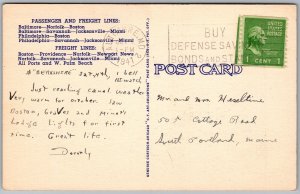 PASSENGER AND FREIGHT LINES:
Baltimore—Norfolk—Boston
Baltimore—Savannah—Jacksonville—Miami
Philadelphia—Boston
Philadelphia—Savannah—Jacksonville—Miami
FREIGHT LINES:
Boston—Providence—Norfolk—Newport News
Norfolk—Savannah—Jacksonville—Miami
All Ports and W. Palm Beach
1941
BUY
DEFENSE SAV
BONDS AND S
1 CENT 1
POST CARD
Just reading casual weather
Very warm for October 1000
Boston, Graves and Minots
Ledge Lights for first
time. Great life.
Dorothy
Mr and Mrs Haseltine
505 Cottage Road
South Portland, Maine